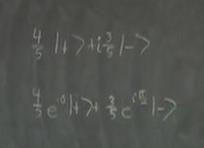 4/5 |+> + i 3/5 |->
4/5 e^{i0} |+> + 3/5 e^{iπ/2} |->